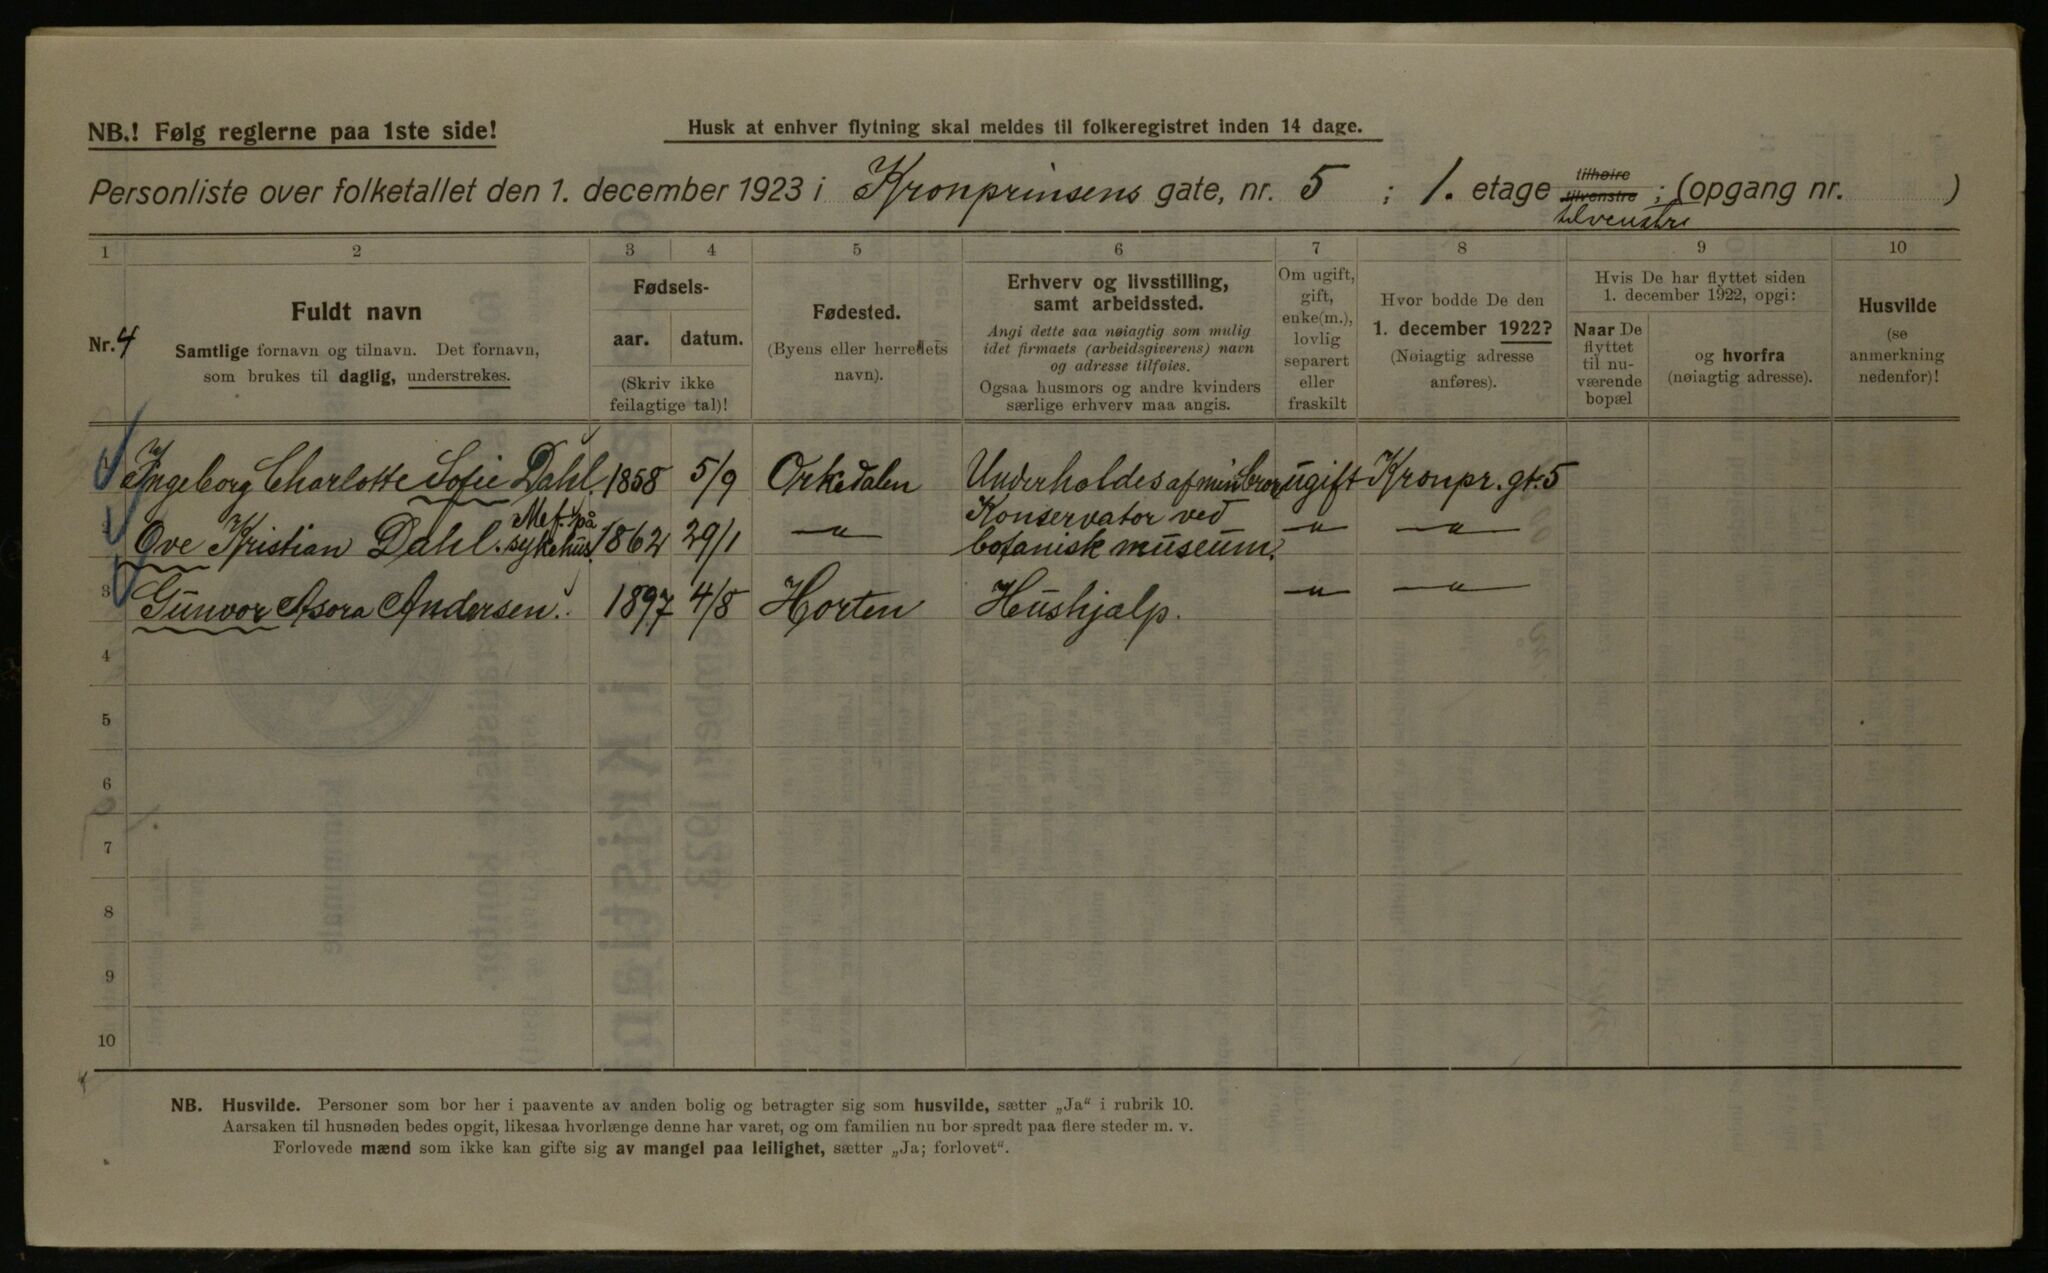 NB.! Følg reglerne paa 1ste side!
Husk at enhver flytning skal meldes til folkeregistret inden 14 dage.
Personliste over folketallet den 1. december 1923 i Kronprinsens gate, nr. 5 ; 1. etage tilhøire tilvenstre ; (opgang nr. )
tilvenstre
1 2 3 4 5 6 7 8 9 10
Nr. 4
Fuldt navn
Samtlige fornavn og tilnavn. Det fornavn,
som brukes til daglig, understrekes.
Fødsels-
aar. datum.
(Skriv ikke
feilagtige tal)!
Fødested.
(Byens eller herredets
navn).
Erhverv og livsstilling,
samt arbeidssted.
Angi dette saa nøiagtig som mulig
idet firmaets (arbeidsgiverens) navn
og adresse tilføies.
Ogsaa husmors og andre kvinders
særlige erhverv maa angis.
Om ugift,
gift,
enke(m.),
lovlig
separert
eller
fraskilt
Hvor bodde De den
1. december 1922?
(Nøiagtig adresse
anføres).
Hvis De har flyttet siden
1. december 1922, opgi:
Naar De
flyttet
til nu-
værende
bopæl
og hvorfra
(nøiagtig adresse).
Husvilde
(se
anmerkning
nedenfor)!
Ingeborg Charlotte Sofie Dahl. 1858 5/9 Orkedalen Underholdes af min bror ugift Kronpr. gt. 5
Ove Kristian Dahl. på sykehus. 1862 29/1 –"– Konservator ved botanisk museum. –"– –"–
3 Gunvor Asora Andersen. 1897 4/8 Horten Hushjælp. –"– –"–
4
5
6
7
8
9
10
NB. Husvilde. Personer som bor her i paavente av anden bolig og betragter sig som husvilde, sætter „Ja“ i rubrik 10.
Aarsaken til husnøden bedes opgit, likesaa hvorlænge denne har varet, og om familien nu bor spredt paa flere steder m. v.
Forlovede mænd som ikke kan gifte sig av mangel paa leilighet, sætter „Ja; forlovet“.